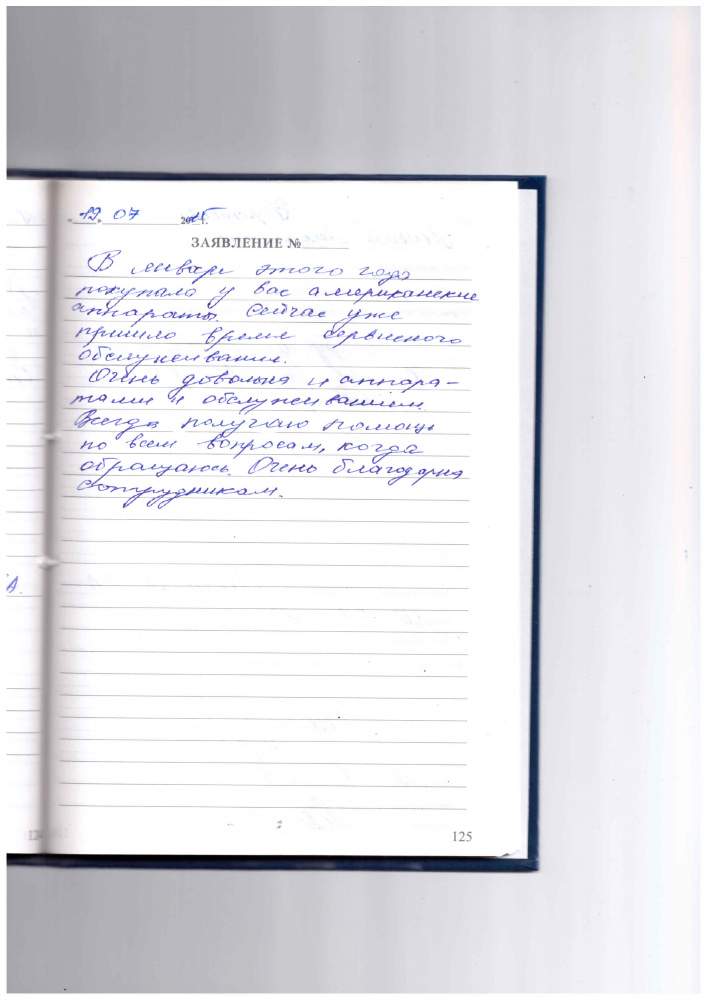 «12» 07 2025г.
ЗАЯВЛЕНИЕ №
В январе этого года
покупала у вас американские
аппараты. Сейчас уже
пришло время сервисного
обслуживания.
Очень довольна и аппара-
тами и обслуживанием.
Всегда получаю помощь
по всем вопросам, когда
обращаюсь. Очень благодарна
сотрудникам.
А.
125